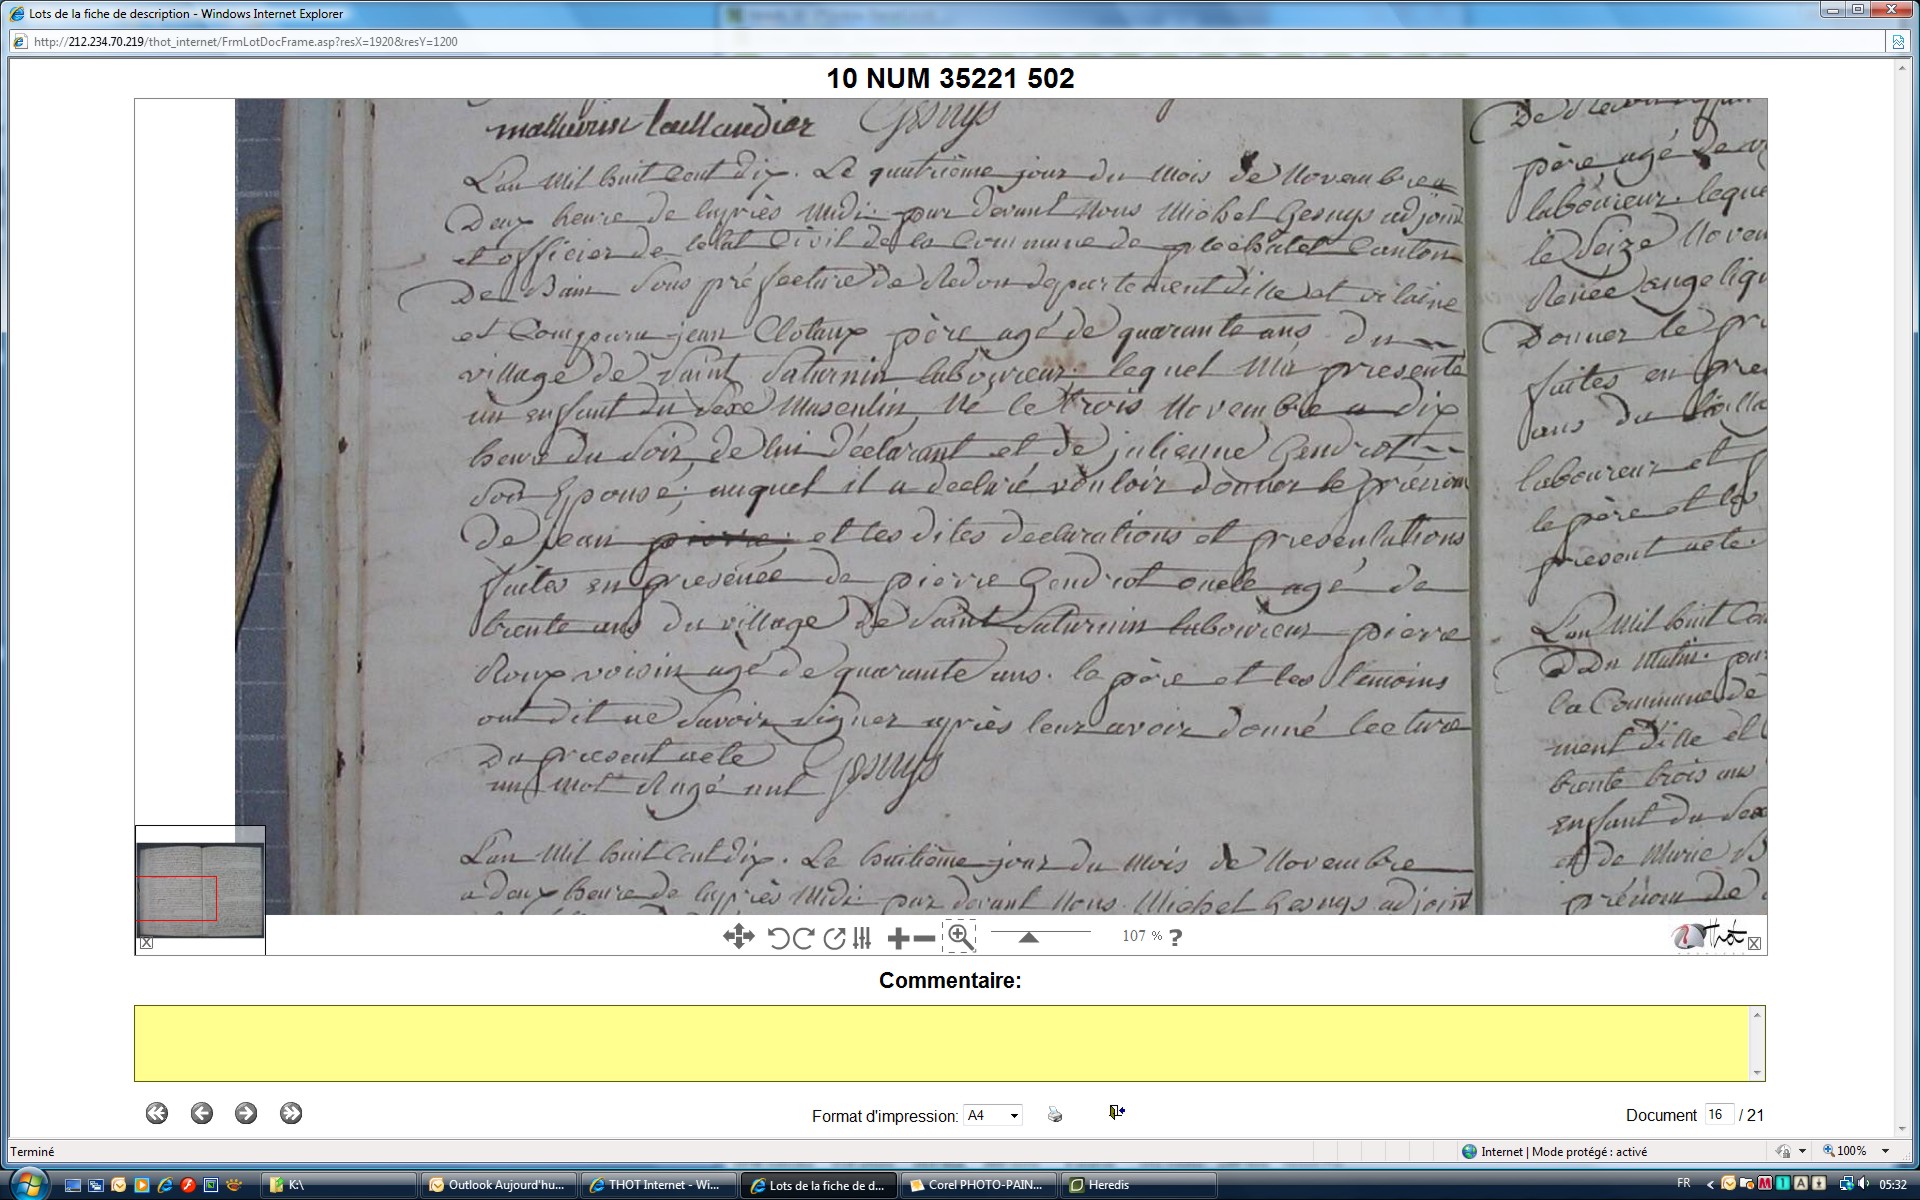 Lots de la fiche de description - Windows Internet Explorer
http://212.234.70.219/thot_internet/FrmLotDocFrame.asp?resX=1920&resY=1200
10 NUM 35221 502
mathurin taillandier Gesnys
L'an Mil huit Cent dix. Le quatrième jour du mois de Novembre a
Deux heure de lapriès Midi par devant Nous Michel Gesnys adjoint
et officier de letat Civil de la Commune de plechatel Canton
De Bain Sous préfecture de Redon departement dille et vilaine
et Comparu jean Clotaux père agé de quarante ans du
village de Saint Saturnin laboureur lequel Ma présenté
un enfant du Sexe Masculin, Né le trois Novembre a dix
heure du Soir, de lui déclarant et de julienne Gendrot
Son Epouse; auquel il a declaré vouloir donner le prénom
De jean pierre; et les dites declarations et presentations
faites en presence de pierre Gendrot oncle agé de
trente ans du village De Saint Saturnin laboureur pierre
Roux voisin agé de quarante ans. le père et les temoins
ont dit ne Savoir Signer apriès leur avoir donné lecture
Du present acte
un Mot Rayé nul Gesnys
L'an Mil huit Cent dix. Le huitième jour du Mois de Novembre
a deux heure de lapriès Midi par devant Nous Michel Gesnys adjoint
père agé de
laboureur. leque
le Seize Noven
Renée angeliqu
Donner le pr
faites en pre
ans du villa
laboureur et
le père et les
present acte.
L'an Mil huit Cen
Du Matin par
la Commune de
ment dille et
trente trois ans
Enfant du Sexe
et de Marie B
prénom de
107 % ?
Thot
Commentaire:
Format d'impression: A4
Document 16 / 21
Terminé
Internet | Mode protégé : activé
100%
K:\
Outlook Aujourd'hu...
THOT Internet - Wi...
Lots de la fiche de d...
Corel PHOTO-PAIN...
Heredis
FR
05:32